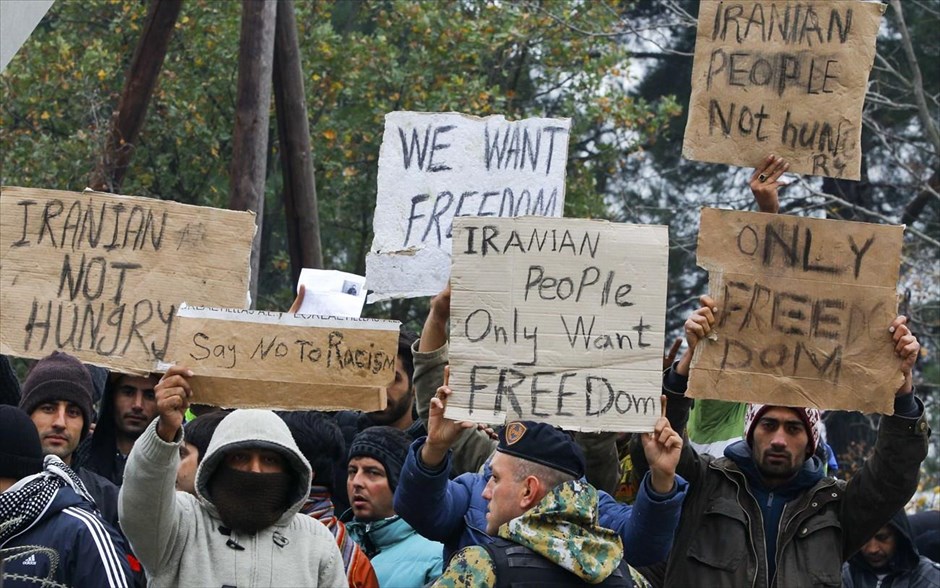 IRANIAN
NOT
HUNGRY
SAY NO TO RACISM
WE WANT
FREEDOM
IRANIAN
PEOPLE
Only Want
FREEDOM
IRANIAN
PEOPLE
Not hung
RY
ONLY
FREE
DOM
adidas